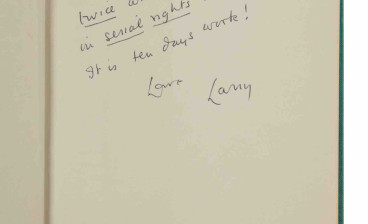 twice
in serial rights
It is ten days work!
Love Larry